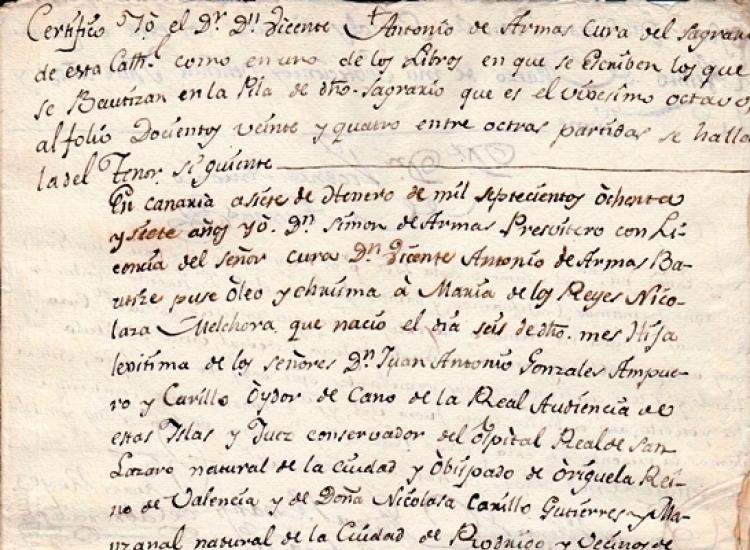 Certifico Yò el Dr. Dn. Vicente Antonio de Armas Cura del Sagrario
de esta Cathl. como en uno de los Libros en que se Escriben los que
se Bautizan en la Pila de dho. Sagrario que es el Vixesimo octavo,
al folio Docientos veinte y quatro entre octras partidas se halla
la del Tenor siguiente
En canaria a siete de Henero de mil septecientos òchenta
y siete años yò. Dn. Simon de Armas Presvitero con Li-
cencia del señor cura Dn. Vicente Antonio de Armas Ba-
utize puse Òleo y chrisma à Maria de los Reyes Nico-
laza Melchora que naciò el dia seis de dho. mes Hija
lexitima de los señores Dn. Juan Antonio Gonzales Ampue-
ro y Carillo Òydor de Cano de la Real Audiencia de
estas Islas y Juez conservador del Ospital Real de San
Lazaro natural de la Ciudad y Òbispado de Òriguela Rei-
no de Valencia y de Doña Nicolasa Carillo Gutierres y Ma-
nzanal natural de la Ciudad de Rodrigo y Vecinos de